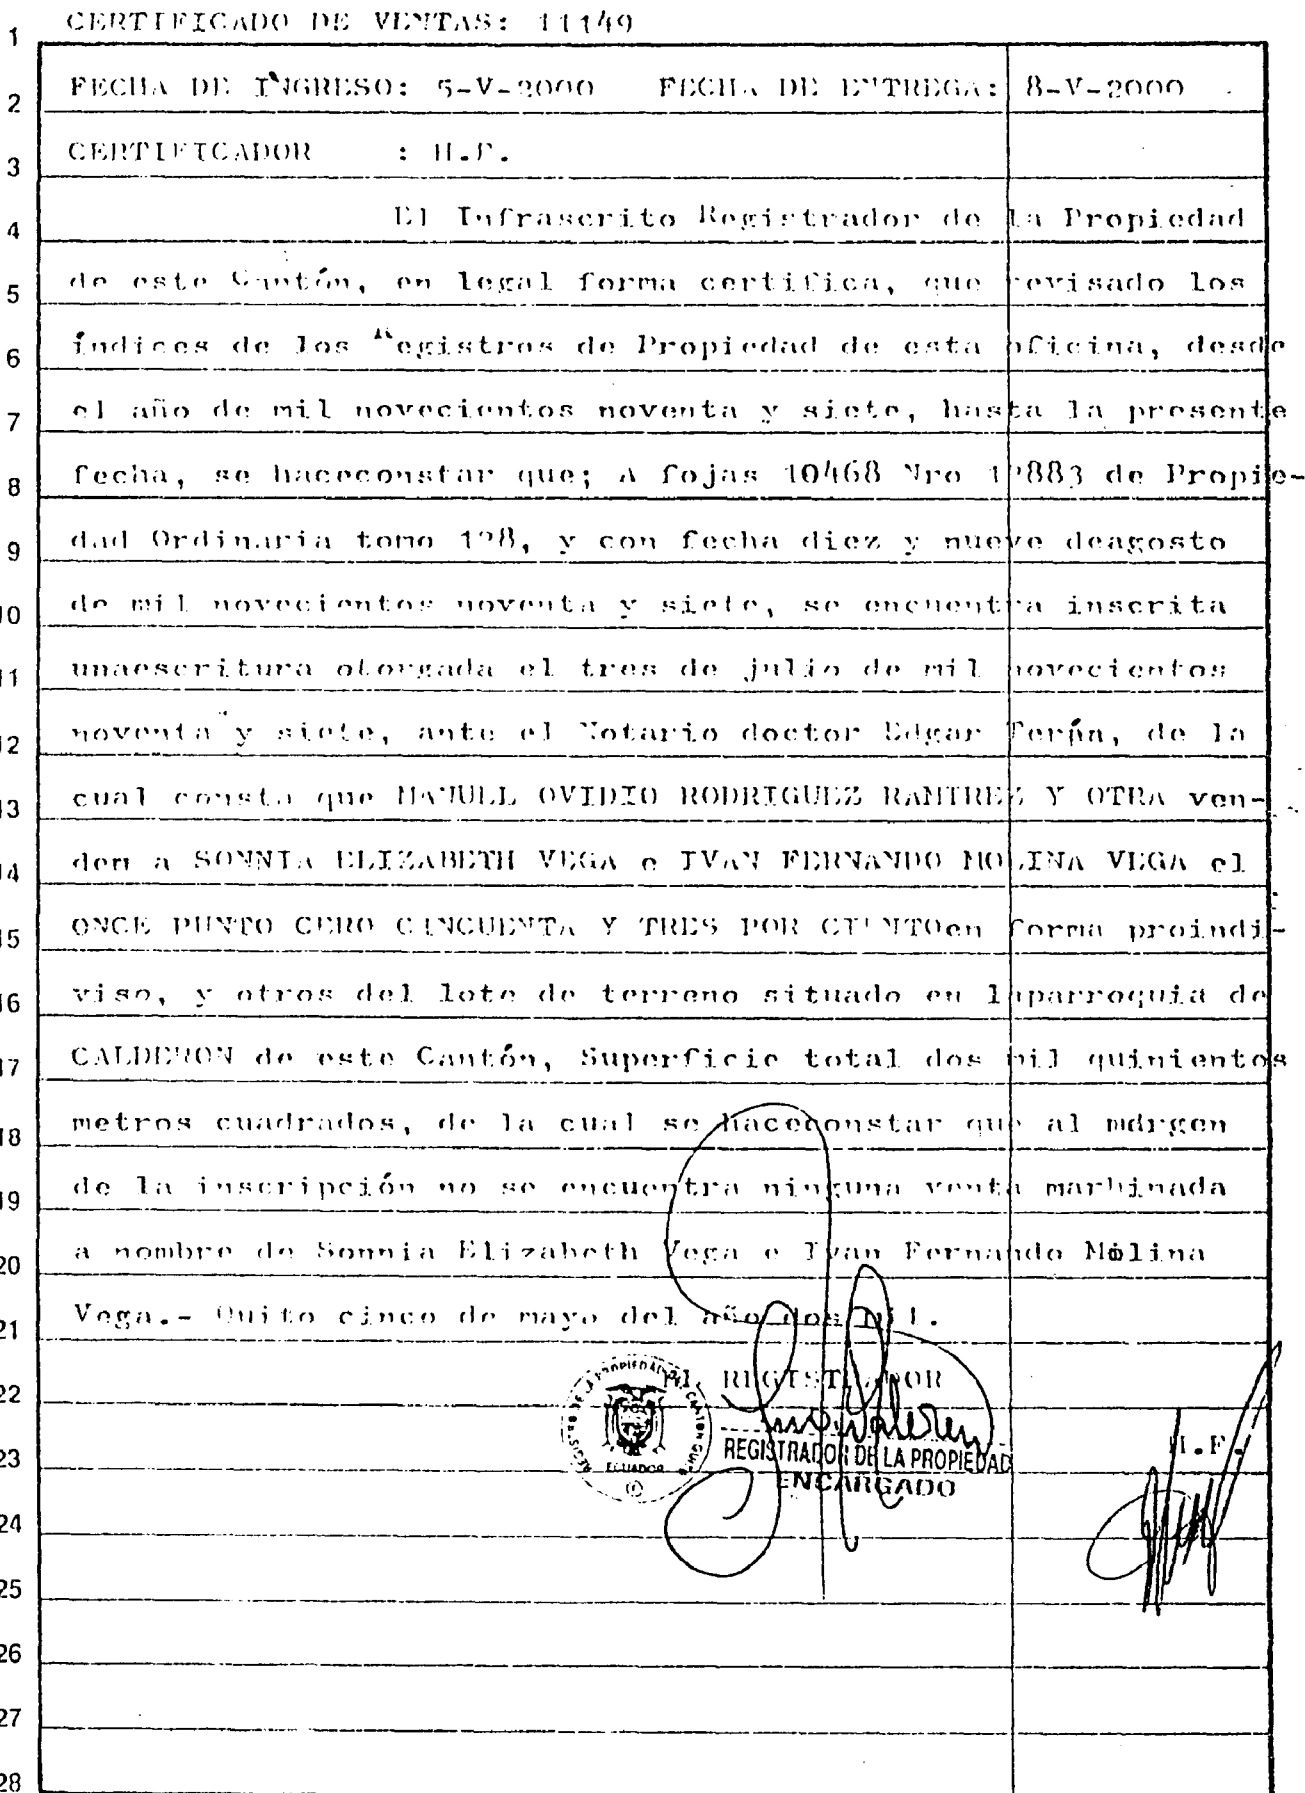 CERTIFICADO DE VENTAS: 11149
1
2 FECHA DE INGRESO: 5-V-2000 FECHA DE ENTREGA: 8-V-2000
3 CERTIFICADOR : H.F.
4 El Infrascrito Registrador de la Propiedad
5 de este Cantón, en legal forma certifica, que revisado los
6 índices de los Registros de Propiedad de esta oficina, desde
7 el año de mil novecientos noventa y siete, hasta la presente
8 fecha, se haceconstar que; A fojas 10468 Nro 12883 de Propie-
9 dad Ordinaria tomo 128, y con fecha diez y nueve deagosto
10 de mil novecientos noventa y siete, se encuentra inscrita
11 unaescritura otorgada el tres de julio de mil novecientos
12 noventa y siete, ante el Notario doctor Edgar Terán, de la
13 cual consta que MANUEL OVIDIO RODRIGUEZ RAMIREZ Y OTRA ven-
14 den a SONNIA ELIZABETH VEGA e IVAN FERNANDO MOLINA VEGA el
15 ONCE PUNTO CERO CINCUENTA Y TRES POR CIENTOen forma proindi-
16 viso, y otros del lote de terreno situado en laparroquia de
17 CALDERON de este Cantón, Superficie total dos mil quinientos
18 metros cuadrados, de la cual se haceconstar que al márgen
19 de la inscripción no se encuentra ninguna venta marhinada
20 a nombre de Sonnia Elizabeth Vega e Ivan Fernando Molina
21 Vega.- Quito cinco de mayo del año dos mil.
22 EL REGISTRADOR
REGISTRO DE LA PROPIEDAD DEL CANTON QUITO
ECUADOR
23 REGISTRADOR DE LA PROPIEDAD H.F.
ENCARGADO
24
25
26
27
28